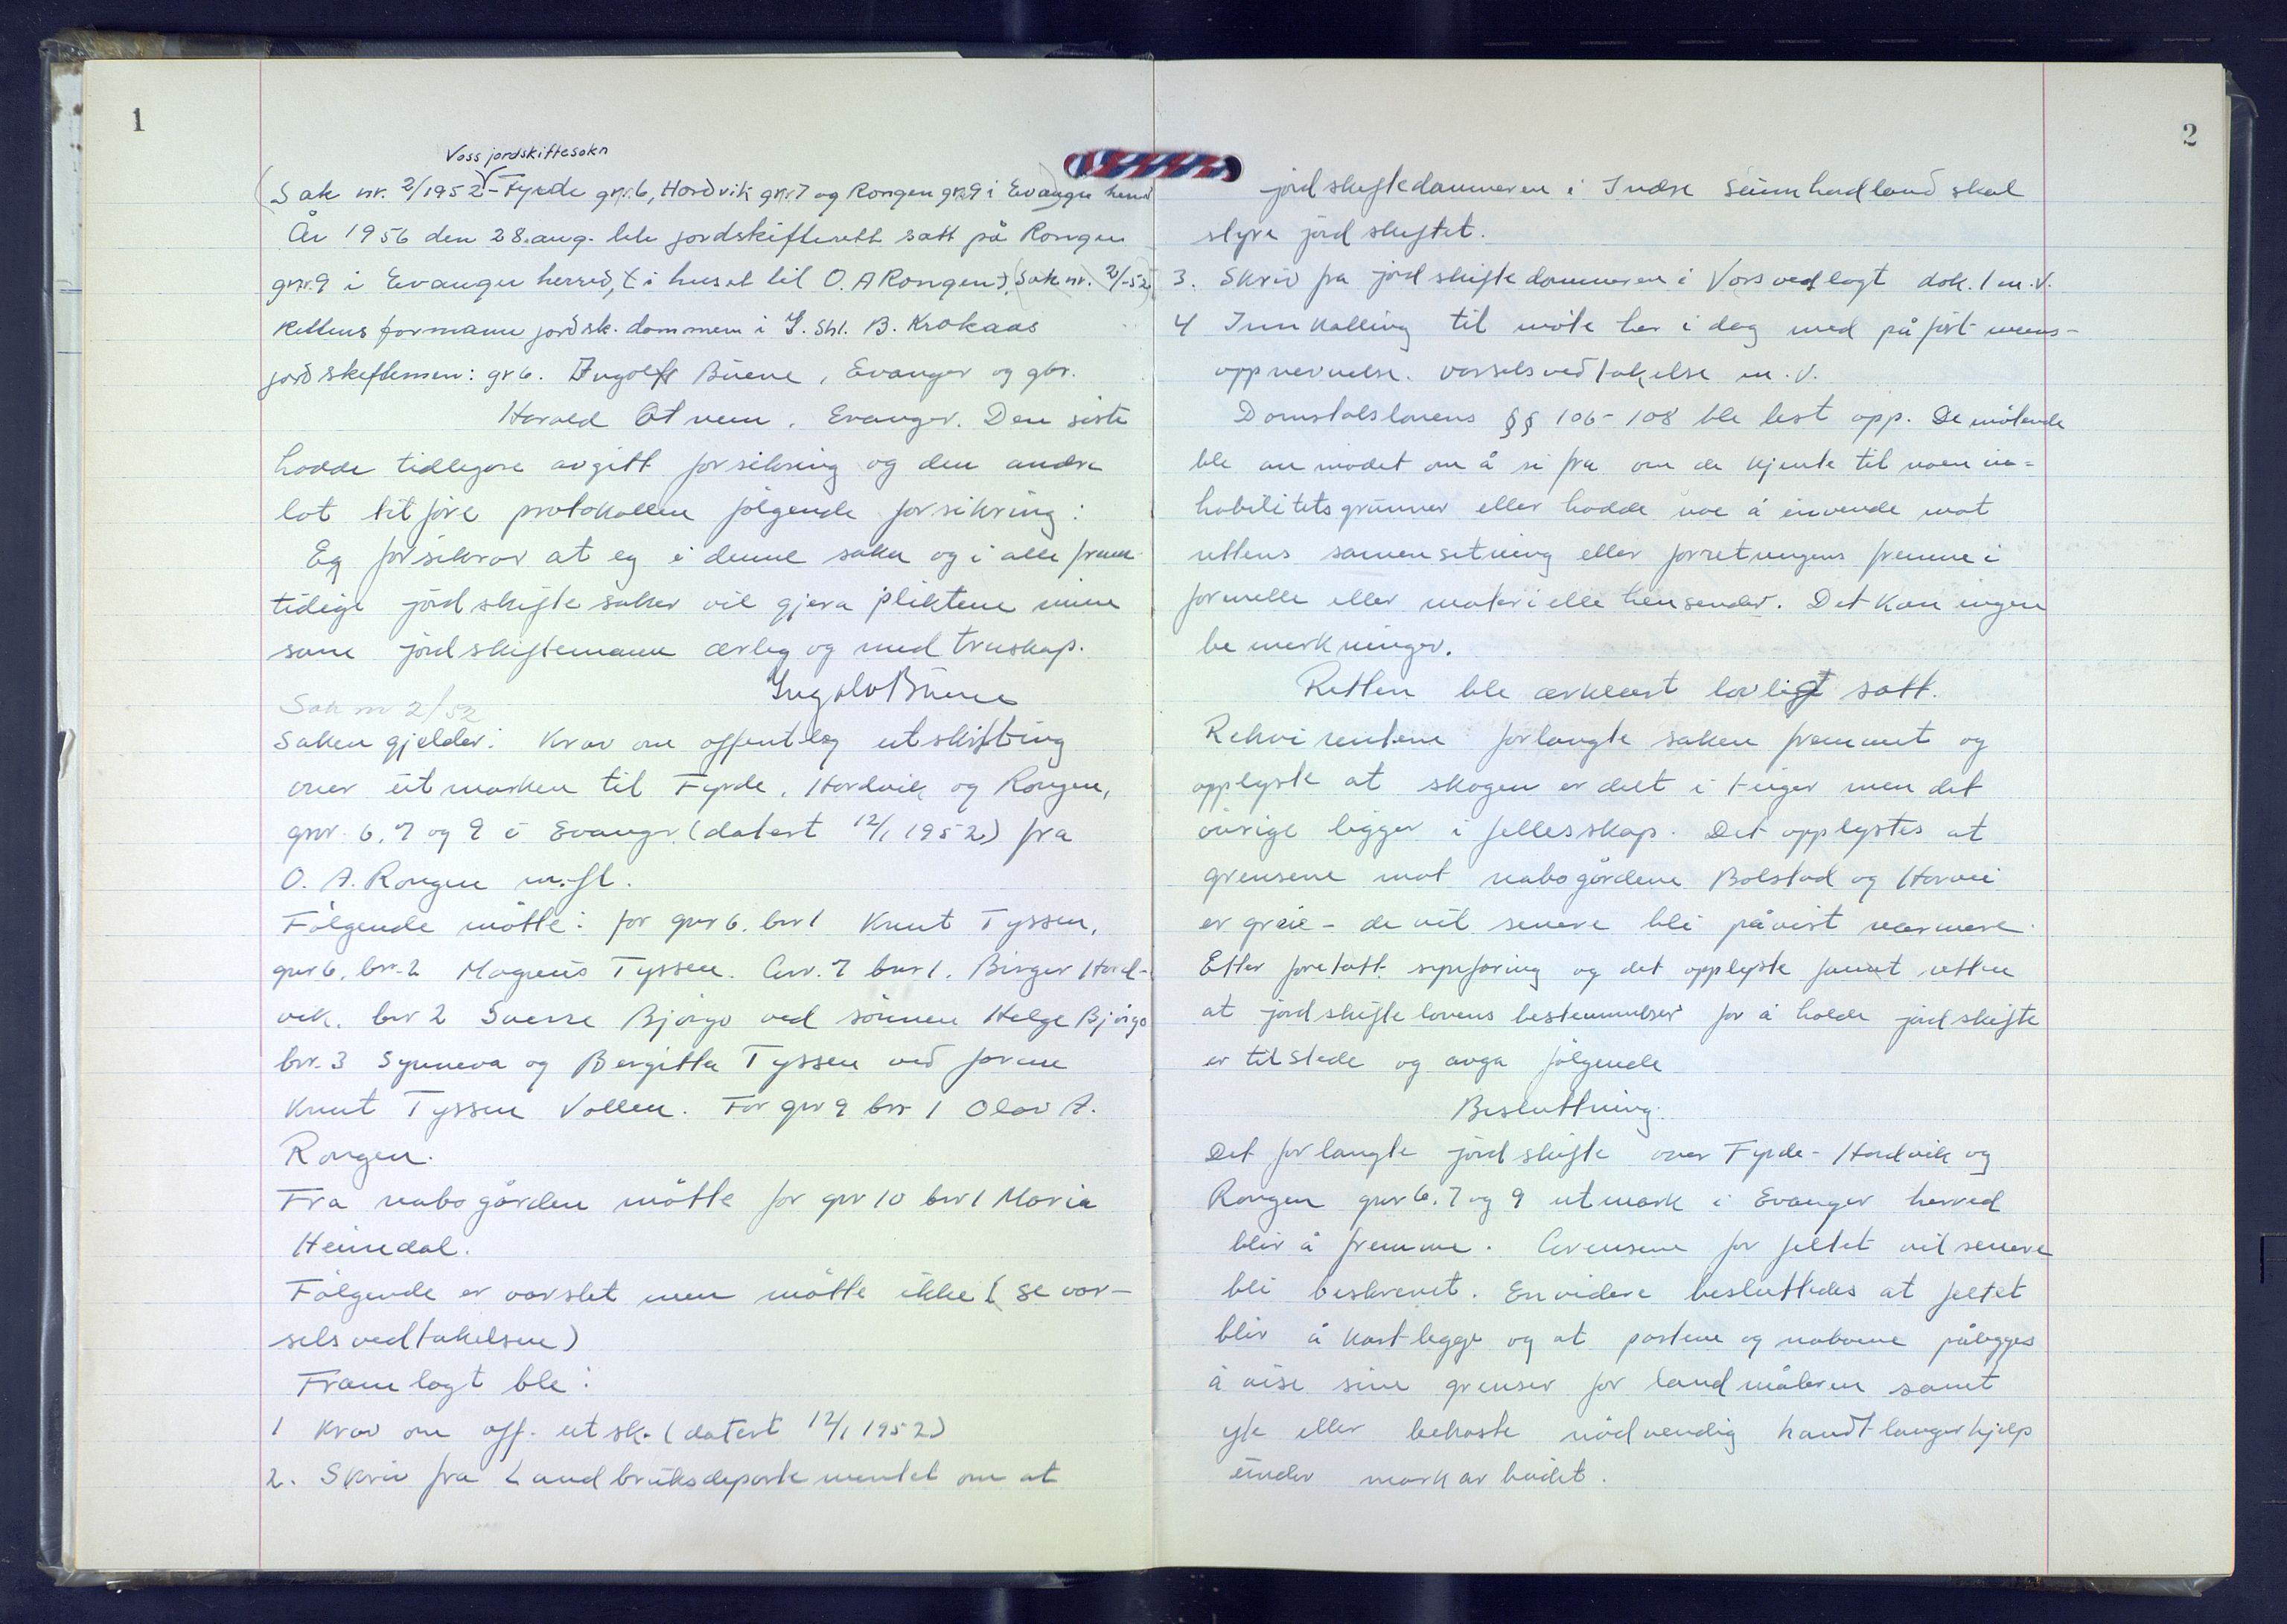 1
Voss jordskiftesokn
(Sak nr. 2/1952 - Fyrde gnr. 6, Hordvik gnr. 7 og Rongen gnr. 9 i Evanger herred
År 1956 den 28. aug. ble jordskifterett satt på Rongen
gnr. 9 i Evanger herred, (i huset til O. A Rongen). (Sak nr. 2/-52)
Rettens formann jordsk. dommeren i I. Shl. B. Krokaas
jordskiftemen: gr 6. Ingolf Büene, Evanger og gbr.
Harald Otnem, Evanger. Den siste
hadde tidlegare avgitt forsikring og den andre
lot tilføre protokollen følgende forsikring:
Eg forsikrar at eg i denne saka og i alle fram-
tidige jordskiftesaker vil gjera pliktene mine
som jordskiftemann ærleg og med truskap.
Ingolv Büene
Sak nr 2/52
Saken gjelder: Krav om offentleg utskifting
over utmarken til Fyrde, Hordvik og Rongen,
gnr. 6, 7 og 9 i Evanger (datert 12/1 1952) fra
O. A. Rongen m.fl.
Følgende møtte: for gnr 6. bnr 1 Knut Tyssen,
gnr 6. bnr. 2 Magnus Tyssen. Gnr. 7 bnr 1. Birger Hord-
vik. bnr 2 Sverre Bjørgo ved sønnen Helge Bjørgo
bnr. 3 Synneva og Bergitta Tyssen ved
Knut Tyssen Vollen. For gnr 9 bnr 1 Olav A.
Rongen.
Fra nabogården møtte for gnr 10 bnr 1 Maria
Heimdal.
Følgende er varslet men møtte ikke (se var-
selsvedtakelsen)
Framlagt ble:
1 Krav om off. utsk. (datert 12/1 1952)
2. Skriv fra Landbruksdepartementet om at
2
jordskiftedommeren i Indre Sunnhordland skal
styre jordskiftet.
3. Skriv fra jordskiftedommeren i Voss vedlagt dok. 1 m.v.
4 Innkalling til møte her i dag med påført menns-
oppnevnelse. varselsvedtakelse m.v.
Domstolslovens §§ 106-108 ble lest opp. De møtende
ble anmodet om å si fra om de kjente til noen in=
habilitetsgrunner eller hadde noe å innvende mot
rettens samensetning eller forretningens fremme i
formelle eller materielle henseender. Det kom ingen
bemerkninger.
Retten ble ærklært lovligt satt.
Rekvirentene forlangte saken fremmet og
opplyste at skogen er delt i teiger men det
øvrige ligger i fellesskap. Det opplystes at
grensene mot nabogårdene Bolstad og Horvei
er greie - de vil senere bli påvist nærmere.
Etter foretatt synfaring og det opplyste fannt retten
at jordskiftelovens bestemmelser for å holde jordskifte
er tilstede og avga følgende
Besluttning.
Det forlangte jordskifte over Fyrde - Hordvik og
Rongen gnr 6. 7 og 9 utmark i Evanger herred
blir å fremme. Grensene for feltet vil senere
bli beskrevet. Envidere besluttedes at feltet
blir å kartlegge og at partene og naboene pålegges
å vise sine grenser for landmåleren samt
yte eller bekoste nødvendig handtlangerhjelp
under markarbeidet.